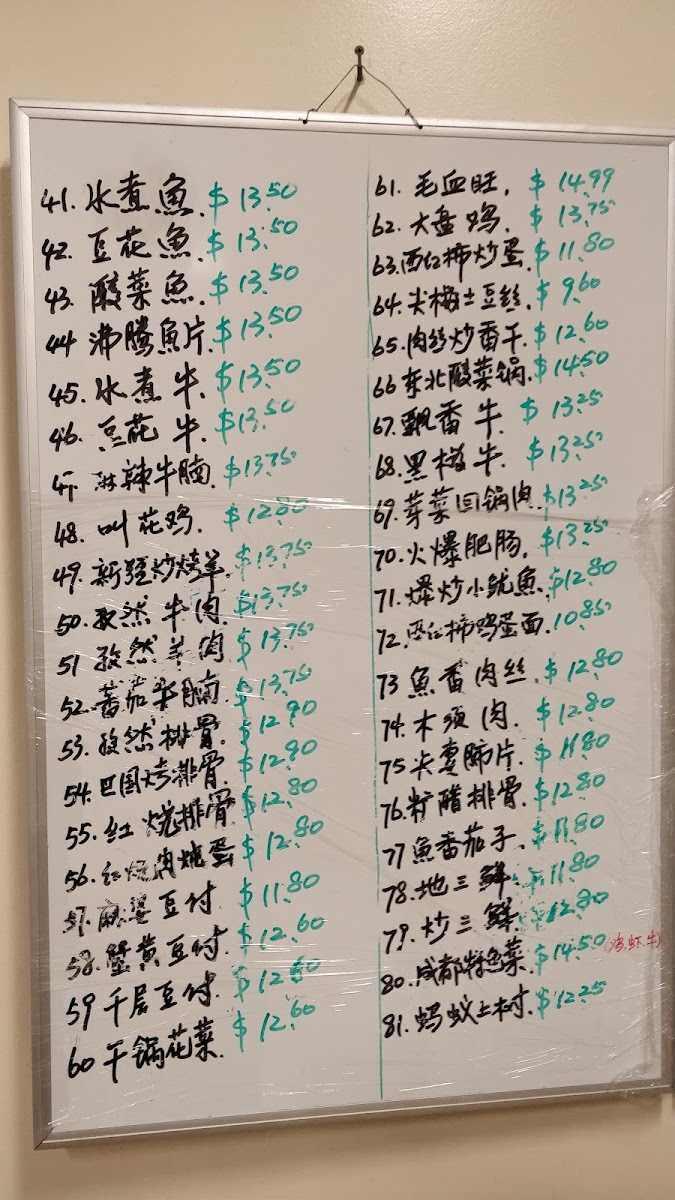 41. 水煮魚. $13.50
42. 豆花魚. $13.50
43. 酸菜魚. $13.50
44 沸腾魚片. $13.50
45. 水煮牛. $13.50
46. 豆花牛. $13.50
47. 麻辣牛腩. $13.75
48. 叫花鸡. $12.80
49. 新疆炒烤羊. $13.75
50. 孜然牛肉. $13.75
51 孜然羊肉 $13.75
52. 蕃茄牛腩 $13.75
53. 孜然排骨. $12.90
54. 巴国烤排骨. $12.90
55. 红烧排骨 $12.80
56. 红烧肉烧蛋 $12.80
57. 麻婆豆付. $11.80
58. 蟹黄豆付. $12.60
59 千层豆付. $12.60
60 干锅花菜. $12.60
61. 毛血旺. $14.99
62. 大盘鸡. $13.75
63. 西红柿炒蛋. $11.80
64. 尖椒土豆丝. $9.60
65. 肉丝炒香干. $12.60
66 东北酸菜锅. $14.50
67. 飘香牛. $13.25
68. 黑椒牛. $13.25
69. 芽菜回锅肉. $13.25
70. 火爆肥肠. $13.25
71. 爆炒小鱿魚. $12.80
72. 西红柿鸡蛋面. 10.85
73 魚香肉丝. $12.80
74. 木须肉. $12.80
75 夫妻肺片. $11.80
76. 糖醋排骨. $12.80
77 魚香茄子. $11.80
78. 地三鲜. $11.80
79. 炒三鲜. $12.80
80. 成都特色菜. $14.50 (鸡.虾.牛)
81. 蚂蚁上树. $12.25